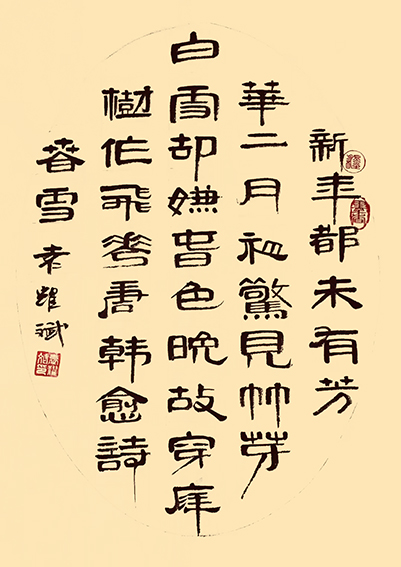 新年都未有芳
華二月初驚見艸芽
白雪却嫌春色晚故穿庭
樹作飛花唐韓愈詩
春雪 袁耀斌